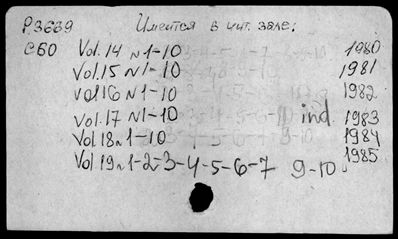 P3669 Имеется в чит. зале:
С60 Vol.14 N1-10 1980
Vol.15 N1-10 1981
Vol16 N1-10 1982
Vol.17 N1-10 ind. 1983
Vol.18 N1-10 1984
Vol 19 N1-2-3-4-5-6-7 9-10 1985